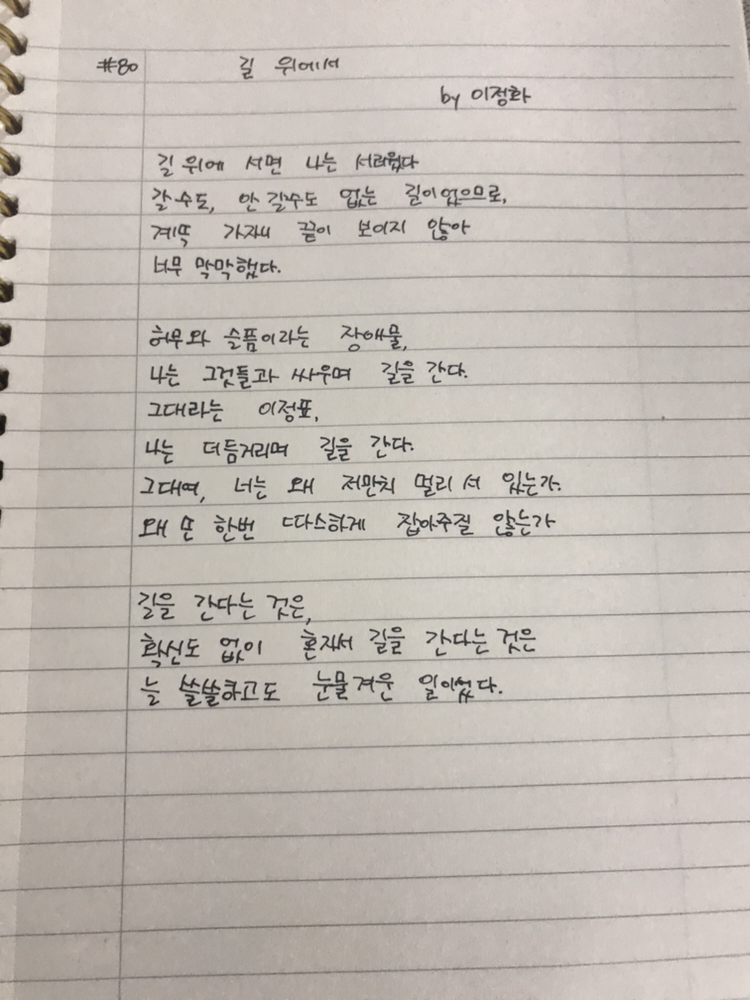 #80 길 위에서
by 이정화
길 위에 서면 나는 서러웠다
갈 수도, 안 갈수도 없는 길이었으므로,
계속 가자니 끝이 보이지 않아
너무 막막했다.
허무와 슬픔이라는 장애물,
나는 그것들과 싸우며 길을 간다.
그대라는 이정표,
나는 더듬거리며 길을 간다.
그대여, 너는 왜 저만치 멀리 서 있는가.
왜 또 한번 따스하게 잡아주질 않는가
길을 간다는 것은,
확신도 없이 혼자서 길을 간다는 것은
늘 쓸쓸하고도 눈물겨운 일이었다.